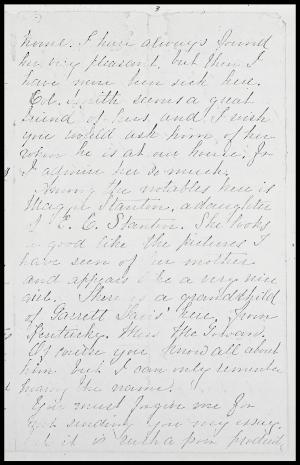 3
home. I have always found
her very pleasant, but then I
have never been sick here.
Col. Smith seems a great
friend of hers and I wish
you would ask him of her
when he is at our house, for
I admire her so much.
Among the notables here is
Maggie Stanton, a daughter
of E. C. Stanton. She looks
a good like the pictures I
have seen of her mother
and appears to be a very nice
girl. There is a grandchild
of Garrett Davis' here, from
Kentucky. Miss
Of course you know all about
him but I can only remember
hearing the name.
You must forgive me for
not sending you my essay,
but it is such a poor product